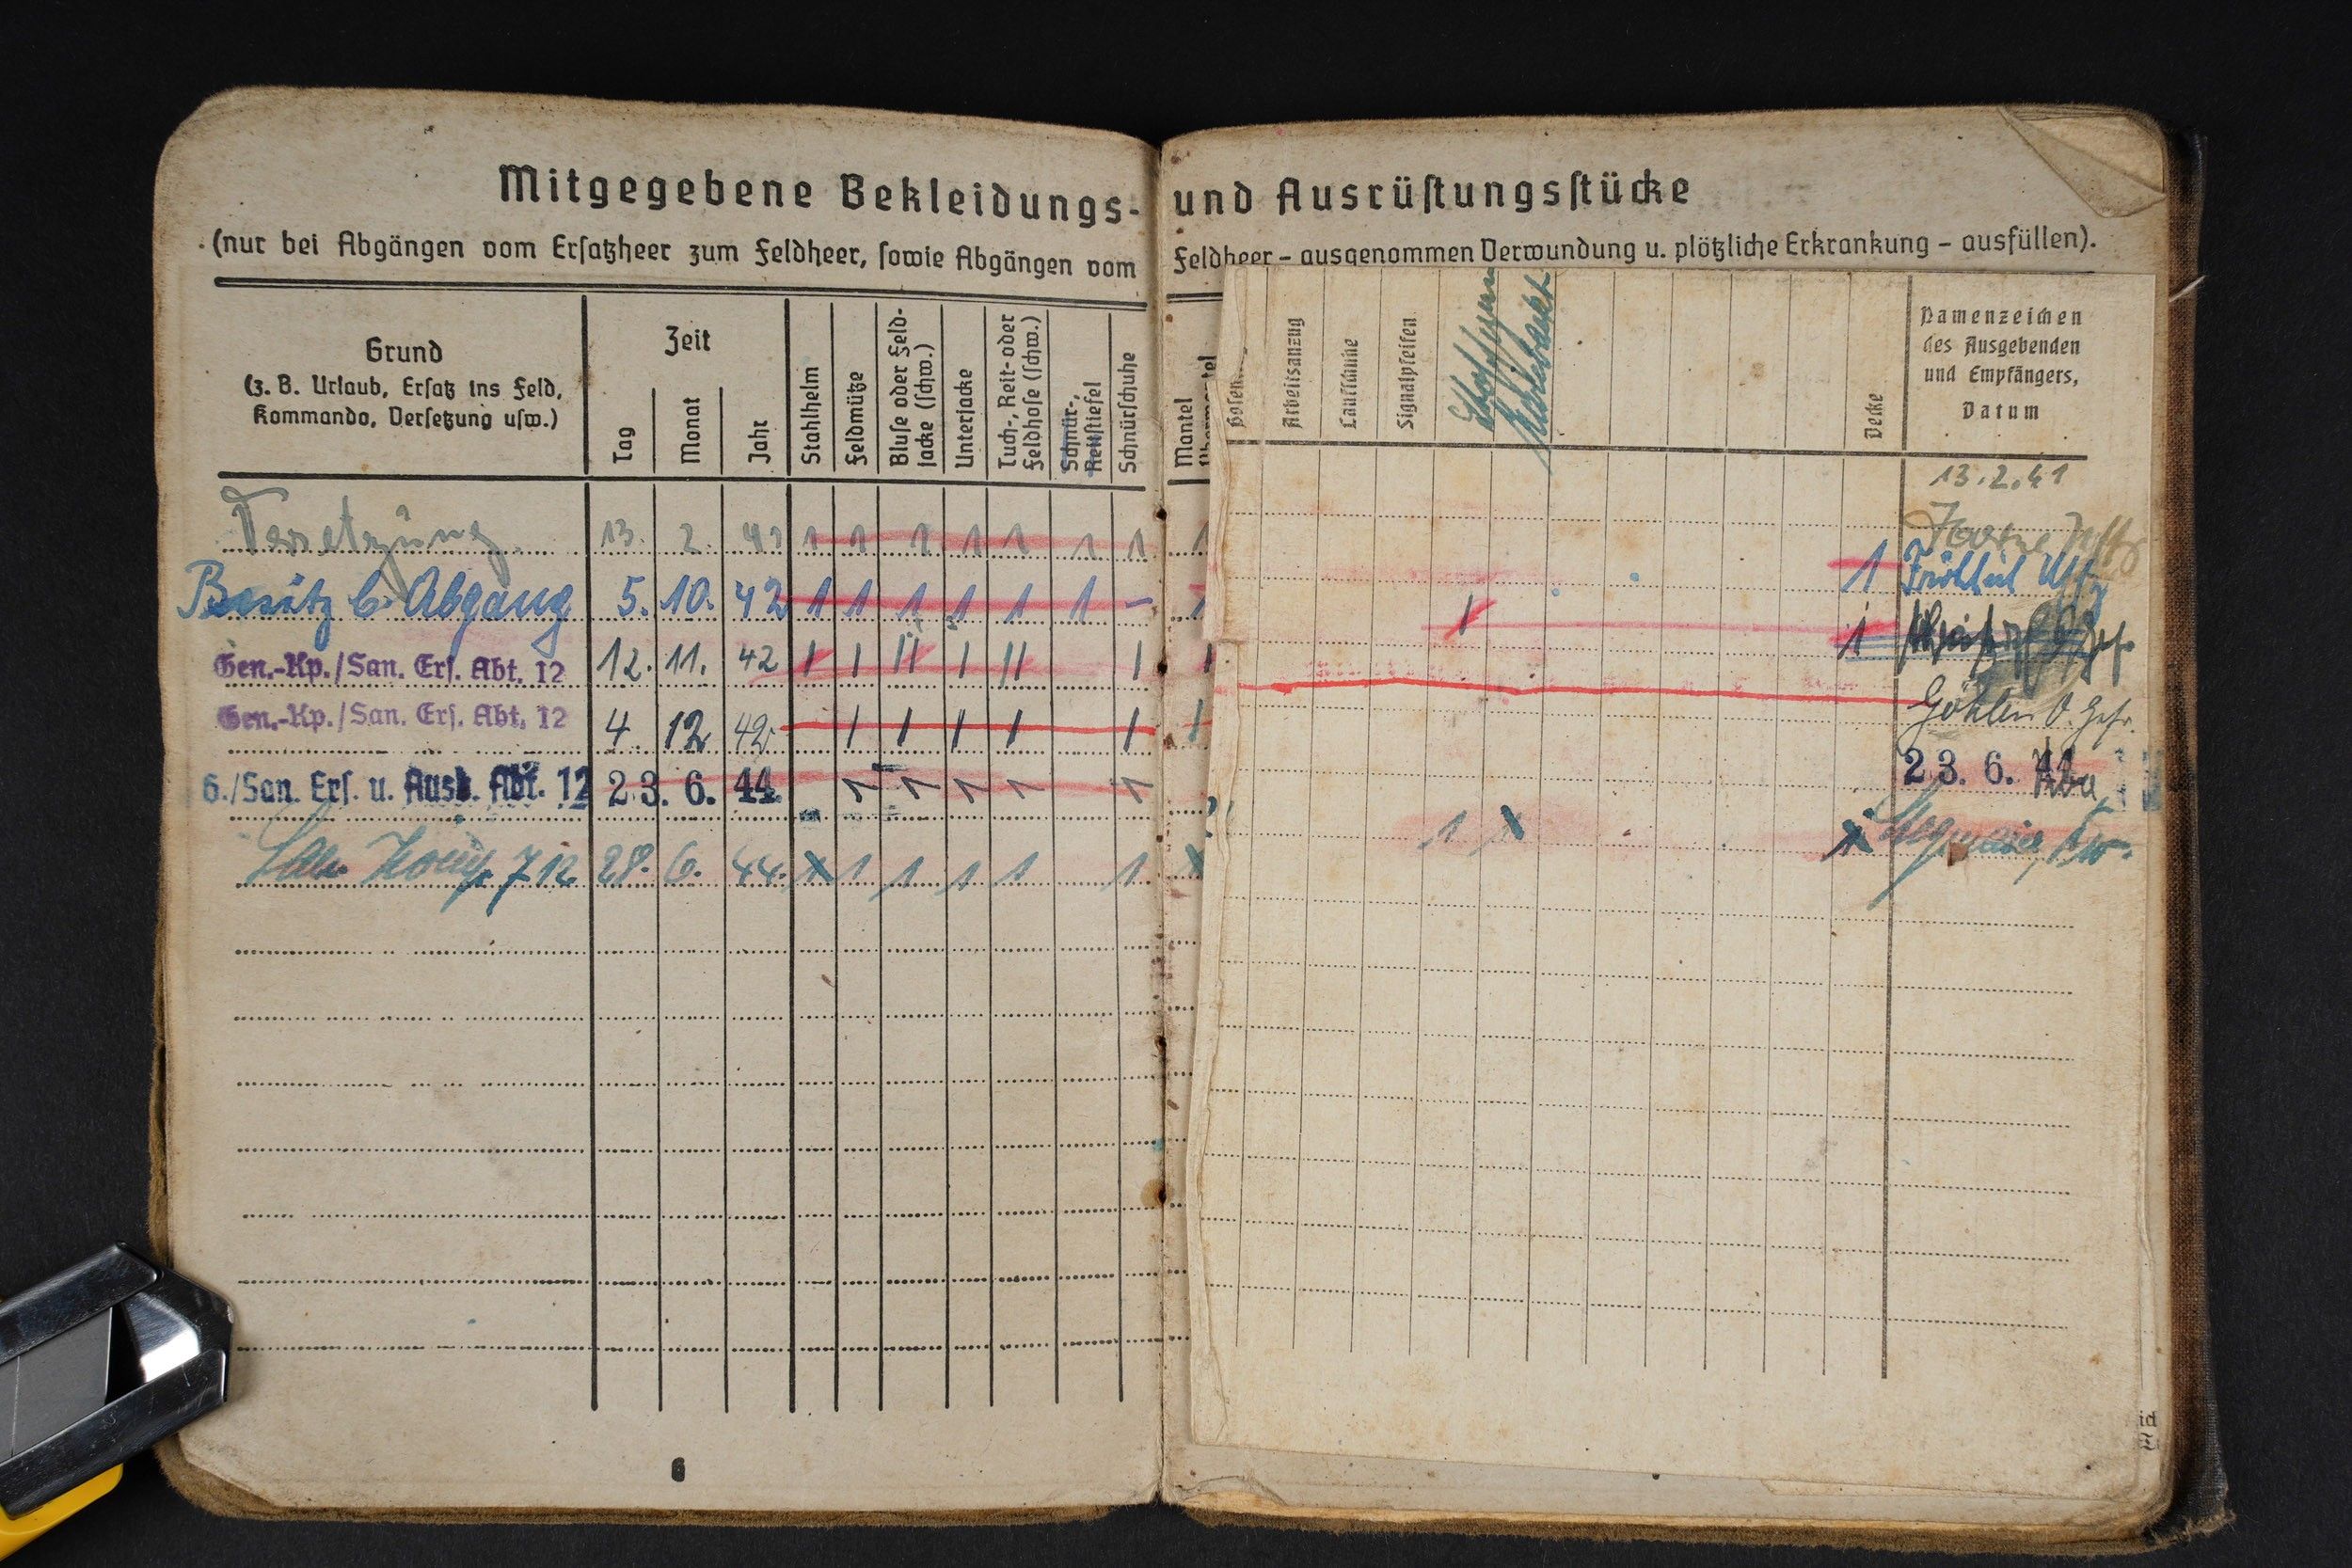 Mitgegebene Bekleidungs- und Ausrüſtungsſtücke
(nur bei Abgängen vom Erſatzheer zum Feldheer, ſowie Abgängen vom Feldheer – ausgenommen Verwundung u. plötzliche Erkrankung – ausfüllen).
Grund
(z. B. Urlaub, Erſatz ins Feld,
Kommando, Verſetzung uſw.)
Zeit
Tag
Monat
Jahr
Stahlhelm
Feldmütze
Bluſe oder Feld-
jacke (ſchw.)
Unterjacke
Tuch-, Reit- oder
Feldhoſe (ſchw.)
Schnür-,
Reitſtiefel
Schnürſchuhe
Mantel
Arbeitsanzug
Laufſchuhe
Signalpfeifen
Decke
Namenzeichen
des Ausgebenden
und Empfängers,
Datum
13.2.41
Versetzung 13. 2. 41 1 1 1 1 1 1 1 1
Besitz b. Abgang 5. 10. 42 1 1 1 1 1 1 – 1 1 Uffz
Gen.-Kp./San. Erſ. Abt. 12 12. 11. 42 I I II I II I I 1 1
Gen.-Kp./San. Erſ. Abt. 12 4. 12 42 I I I I I I O. Gefr.
6./San. Erſ. u. Ausb. Abt. 12 23. 6. 44 1 1 1 1 1 23. 6. 44
San. Komp. 712 28. 6. 44. 1 1 1 1 1 1
6